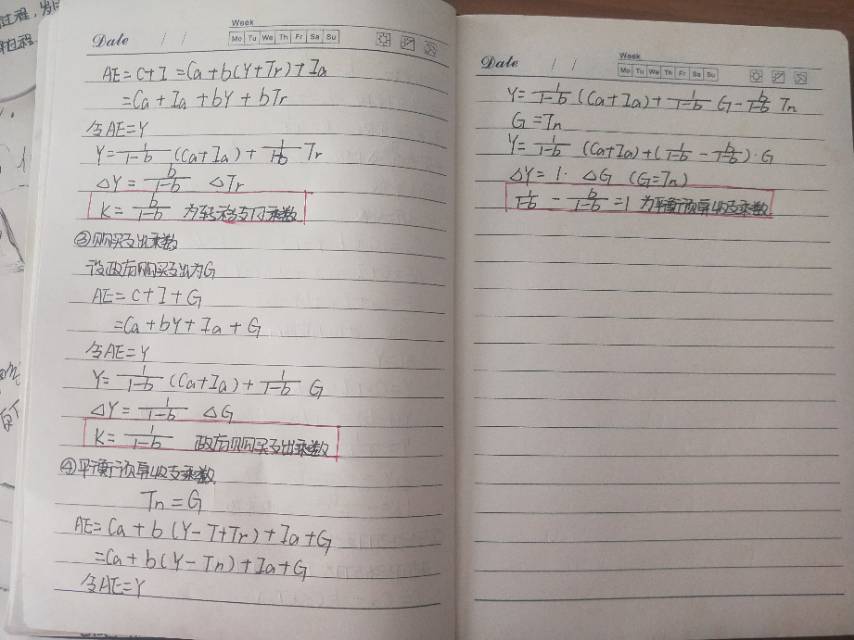 过程,
Week
Date / /
Mo Tu We Th Fr Sa Su
AE=C+I=Ca+b(Y+Tr)+Ia
=Ca+Ia+bY+bTr
令AE=Y
Y=1/(1-b) (Ca+Ia)+1/(1-b) Tr
△Y=b/(1-b) △Tr
K=b/(1-b) 为转移支付乘数
③购买支出乘数
设政府购买支出为G
AE=C+I+G
=Ca+bY+Ia+G
令AE=Y
Y=1/(1-b) (Ca+Ia)+1/(1-b) G
△Y=1/(1-b) △G
K=1/(1-b) 政府购买支出乘数
④平衡预算收支乘数
Tn=G
AE=Ca+b(Y-T+Tr)+Ia+G
=Ca+b(Y-Tn)+Ia+G
令AE=Y
Week
Date / /
Mo Tu We Th Fr Sa Su
Y=1/(1-b) (Ca+Ia)+1/(1-b) G-b/(1-b) Tn
G=Tn
Y=1/(1-b) (Ca+Ia)+(1/(1-b)-b/(1-b))·G
△Y=1·△G (G=Tn)
1/(1-b)-b/(1-b)=1 为平衡预算收支乘数